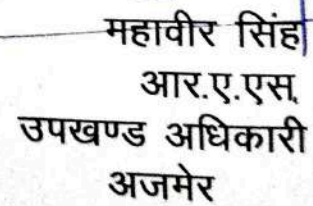 महावीर सिंह
आर.ए.एस.
उपखण्ड अधिकारी
अजमेर